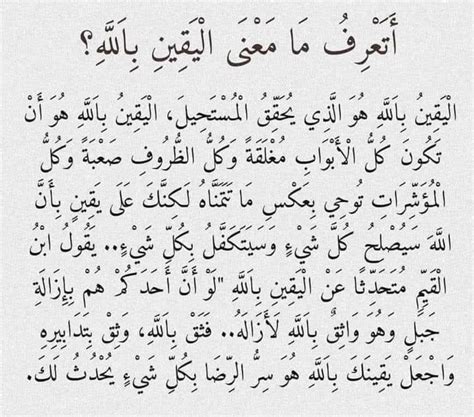 أَتَعْرِفُ مَا مَعْنَى الْيَقِينِ بِاللَّهِ؟
الْيَقِينُ بِاللَّهِ هُوَ الَّذِي يُحَقِّقُ الْمُسْتَحِيلَ، الْيَقِينُ بِاللَّهِ هُوَ أَنْ
تَكُونَ كُلُّ الْأَبْوَابِ مُغْلَقَةً وَكُلُّ الظُّرُوفِ صَعْبَةً وَكُلُّ
الْمُؤَشِّرَاتِ تُوحِي بِعَكْسِ مَا تَتَمَنَّاهُ لَكِنَّكَ عَلَى يَقِينٍ بِأَنَّ
اللَّهَ سَيُصْلِحُ كُلَّ شَيْءٍ وَسَيَتَكَفَّلُ بِكُلِّ شَيْءٍ.. يَقُولُ ابْنُ
الْقَيِّمِ مُتَحَدِّثًا عَنْ الْيَقِينِ بِاللَّهِ "لَوْ أَنَّ أَحَدَكُمْ هُمْ بِإِزَالَةِ
جَبَلٍ وَهُوَ وَاثِقٌ بِاللَّهِ لَأَزَالَهُ.. فَثِقْ بِاللَّهِ، وَثِقْ بِتَدَابِيرِهِ
وَاجْعَلْ يَقِينَكَ بِاللَّهِ هُوَ سِرُّ الرِّضَا بِكُلِّ شَيْءٍ يُحْدُثُ لَكَ.